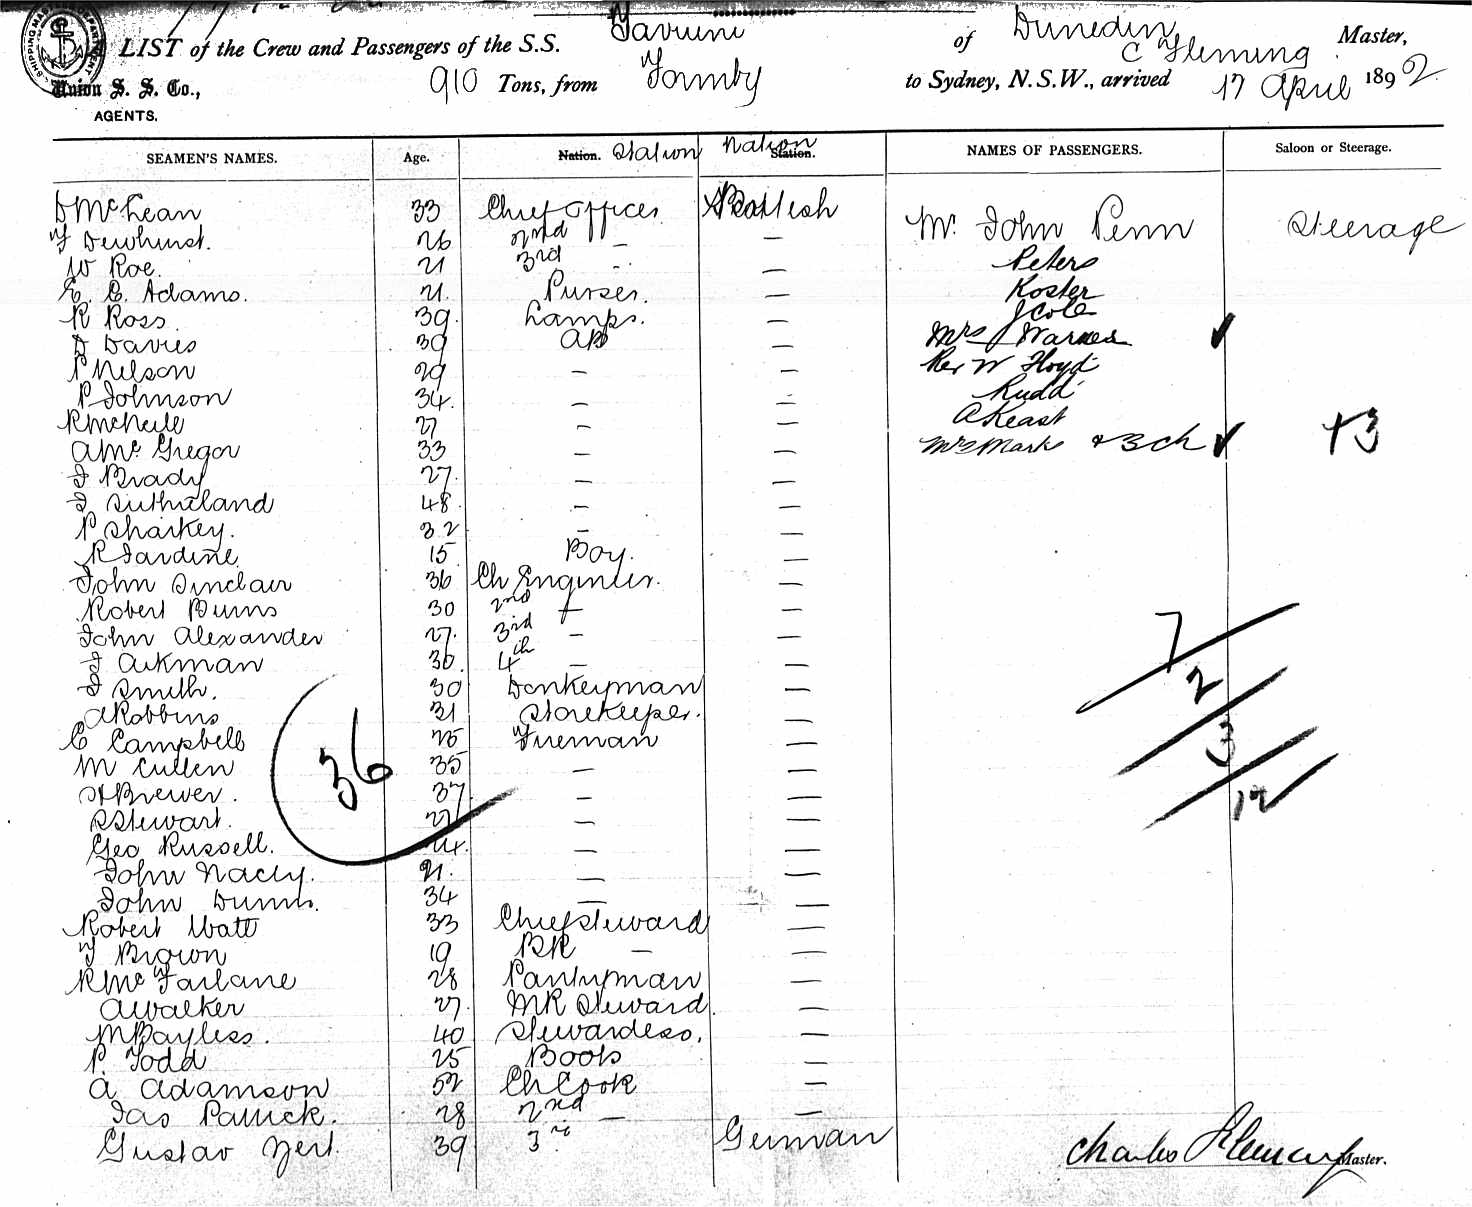 SHIPPING MASTER'S DEPARTMENT
LIST of the Crew and Passengers of the S.S. Taviuni of Dunedin C Fleming Master,
Union S. S. Co., AGENTS. 910 Tons, from Formby to Sydney, N.S.W., arrived 17 April 1892
SEAMEN'S NAMES. Age. Nation. Station Nation Station. NAMES OF PASSENGERS. Saloon or Steerage.
D McLean 33 Chief Officer Scottish Mr John Penn Steerage
T Dewhurst. 26 2nd — —
W Roe. 21 3rd - — Peters
E. E. Adams. 21. Purser. — Koster
R Ross. 39. Lamps. — J Cole
D Davies 39 AB — Mrs J Warnes
P Nelson 29 — — Rev W Floyd
P Johnson 34. — — Rudd
R McNeile 27 — — A Keast
A McGregor 33 — — Mrs Mark & 3 ch +3
J Brady 27. — —
J Sutherland 48. — —
P Sharkey. 32 — —
R Jardine 15 Boy. —
John Sinclair 36 Ch Engineer. —
Robert Burns 30 2nd — —
John Alexander 27. 3rd — — 7
J Aikman 30. 4th — —
J Smith. 30 Donkeyman — 2
A Robbins 31 Storekeeper. —
C Campbell 25 Fireman — 3
M Cullen 35 — —
36
H Brewer. 37. — — 12
S Stewart. 27 — —
Geo Russell. 24. — —
John 21. — —
John Dunn. 34 — —
Robert Watt 33 Chief Steward —
T Brown 19 BR — —
R McFarlane 28 Pantryman —
A Walker 27. MR Steward. —
M Bayless. 40 Stewardess. —
P. Todd 25 Boots —
A Adamson 52 Ch Cook —
Jas Patrick. 28 2nd — —
Gustav 39 3rd German
Charles Fleming Master.